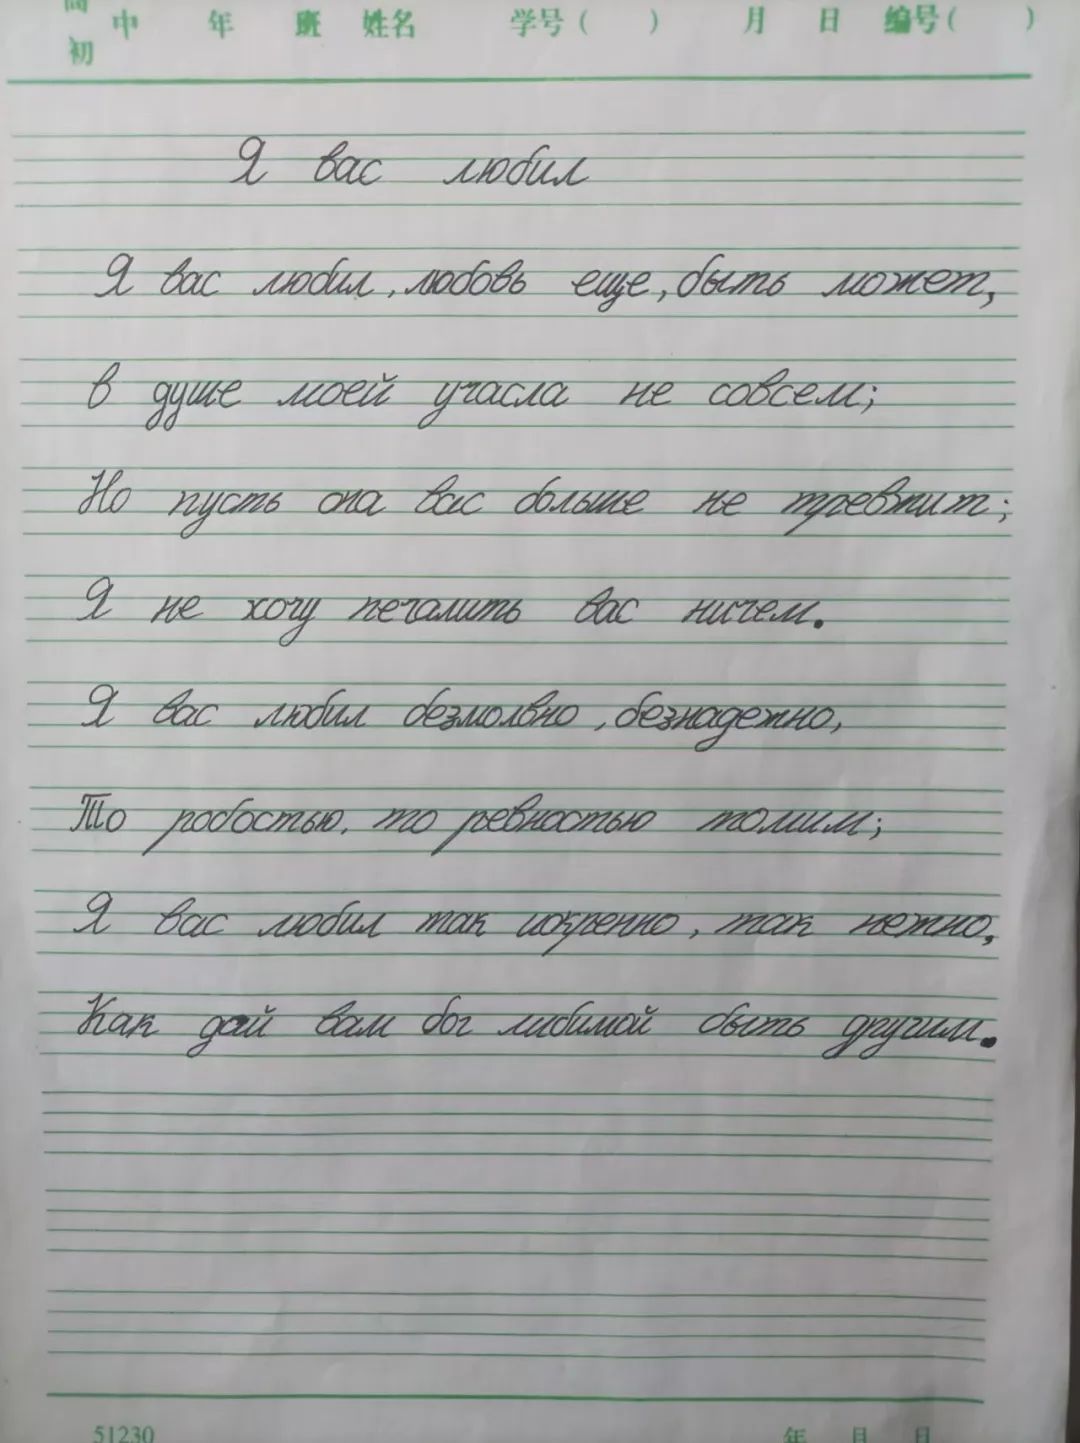 高
中 年 班 姓名 学号( ) 月 日 编号( )
初
Я вас любил
Я вас любил, любовь еще, быть может,
в душе моей учасла не совсем;
Но пусть она вас больше не тревжит;
Я не хочу печалить вас ничем.
Я вас любил безмолвно, безнадежно,
То робостью, то ревностью томим;
Я вас любил так искренно, так нежно,
Как дай вам бог любимой быть другим.
51230 年 月 日